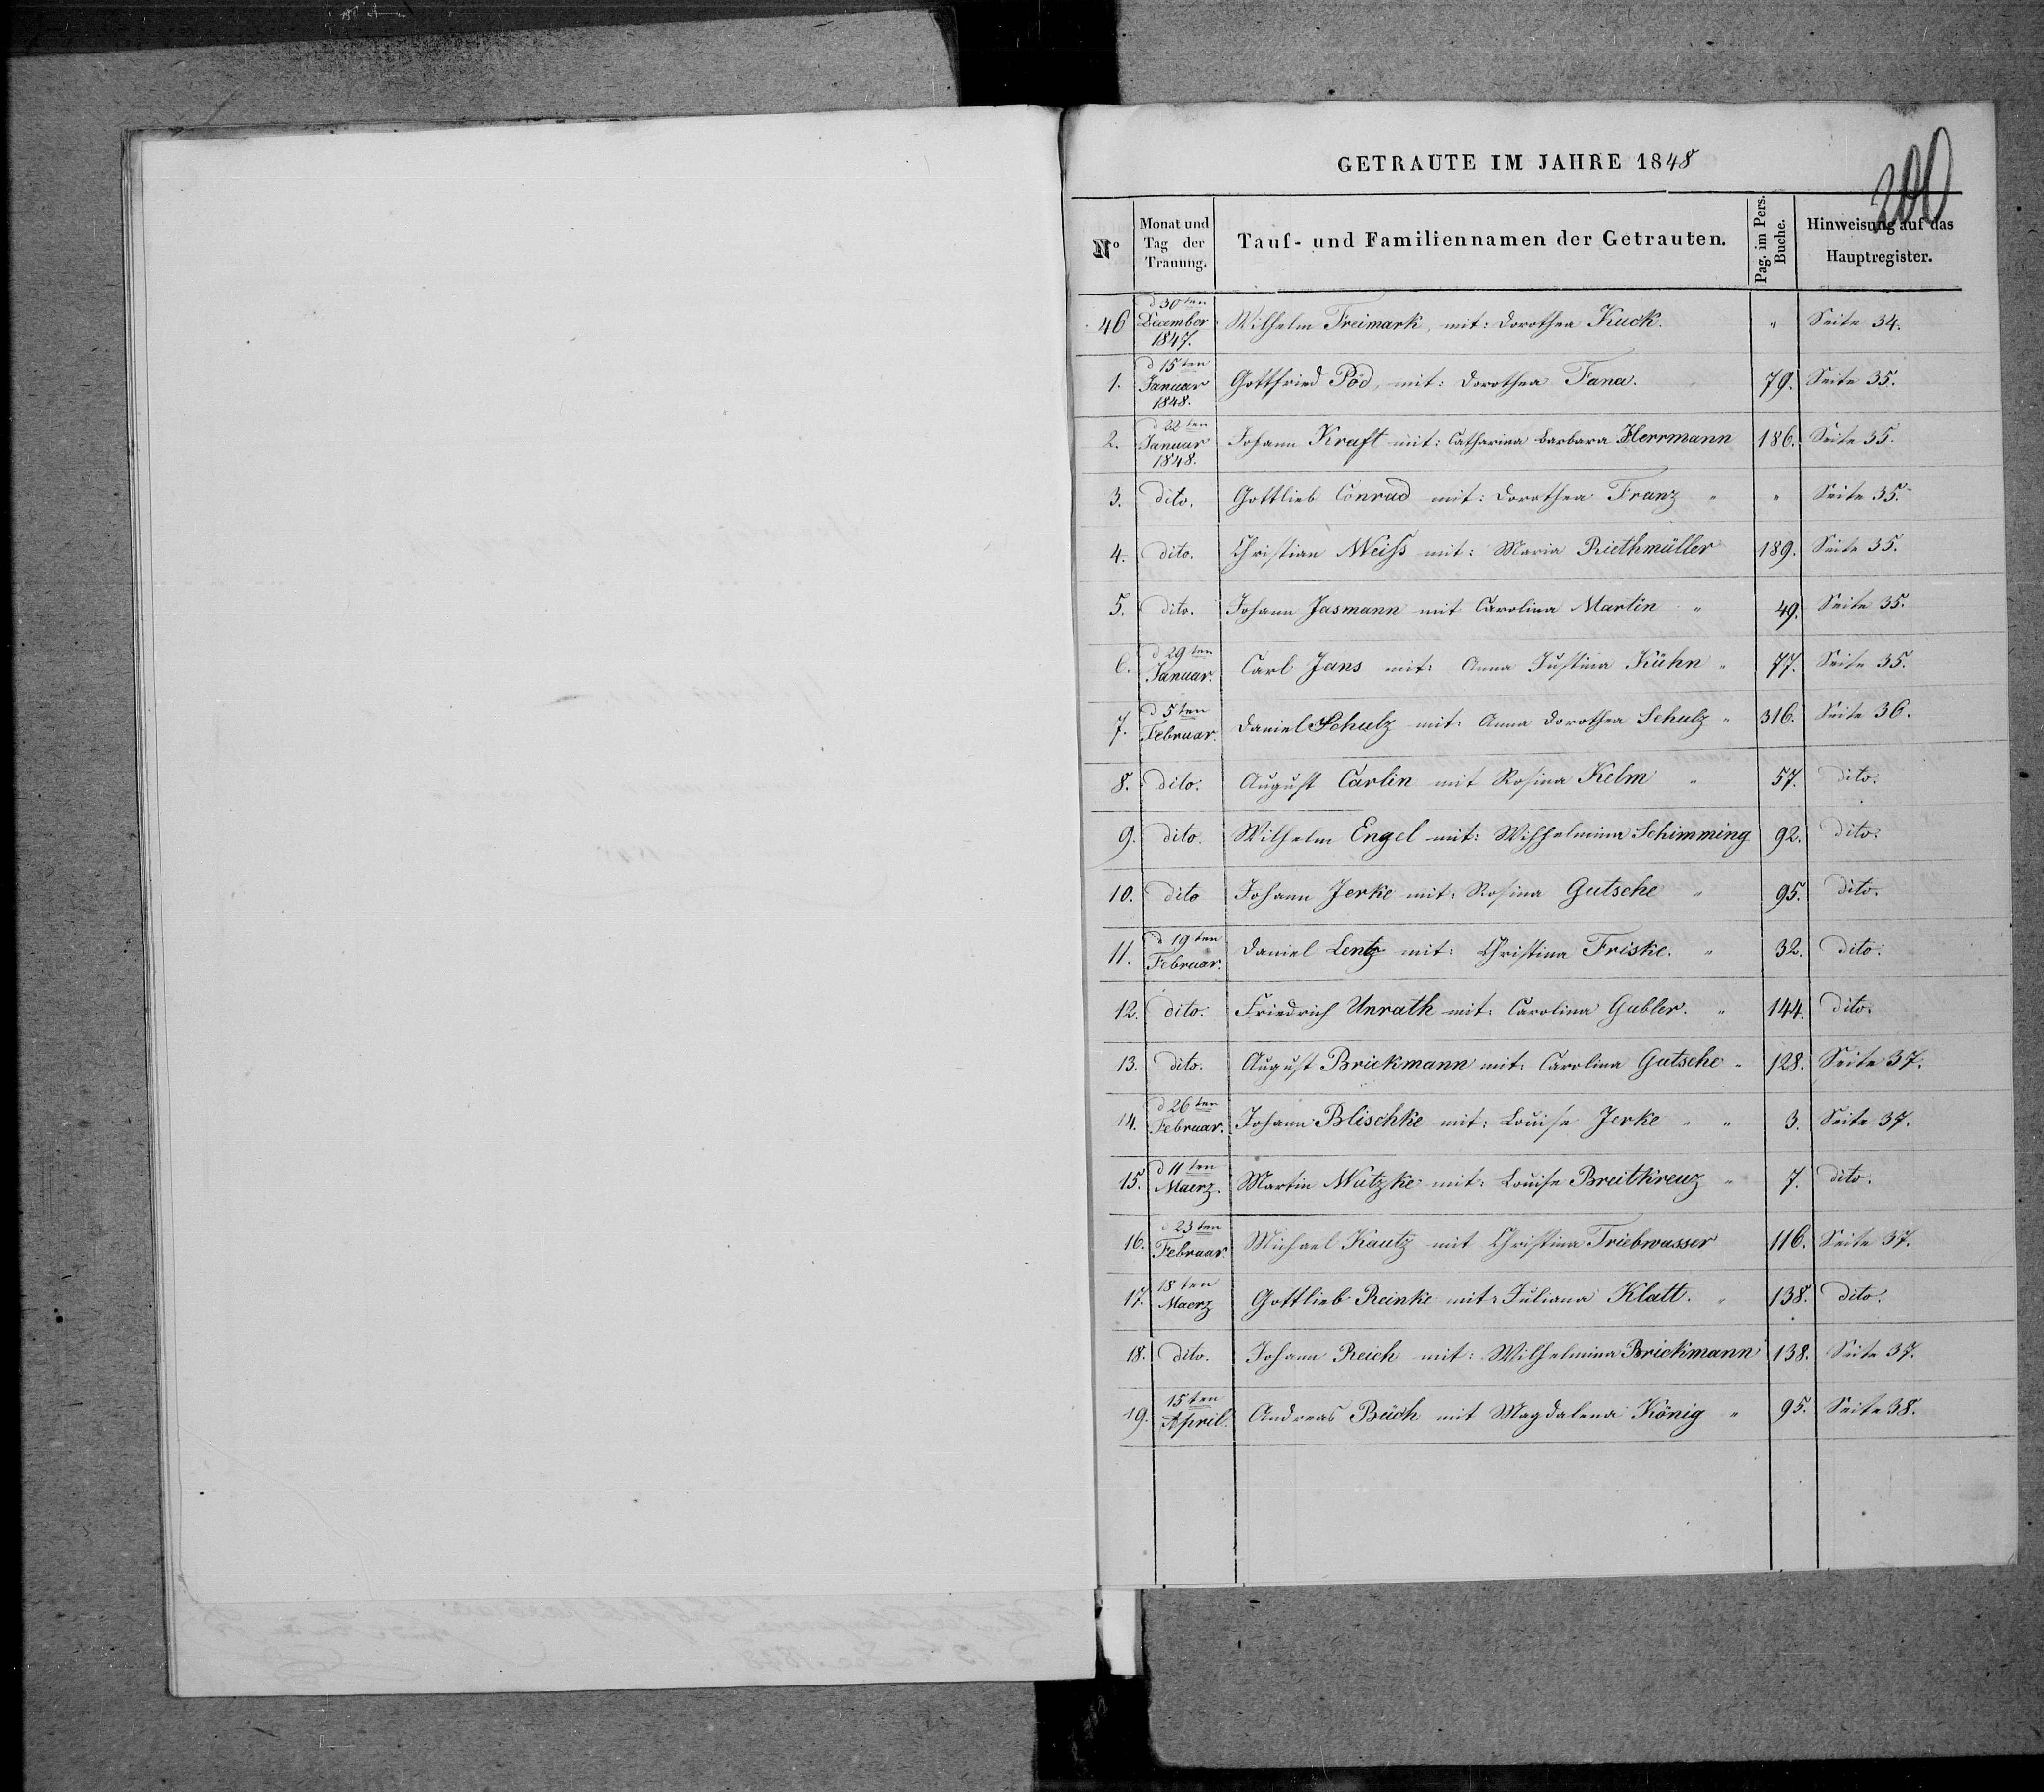 GETRAUTE IM JAHRE 1848
200
No
Monat und Tag der Trauung.
Tauf- und Familiennamen der Getrauten.
Pag. im Pers. Buche.
Hinweisung auf das Hauptregister.
46 d 30ten December 1847. Wilhelm Freimark, mit: Dorothea Kuck. " Seite 34.
1. d 15ten Januar 1848. Gottfried Pöd, mit: Dorothea Fana. 79. Seite 35.
2. d 22ten Januar 1848. Johann Kraft mit: Catharina Barbara Herrmann 186. Seite 35.
3. dito. Gottlieb Conrad mit: Dorothea Franz " " Seite 35.
4. dito. Christian Weiss mit: Maria Riethmüller 189. Seite 35.
5. dito. Johann Jasmann mit Carolina Martin " 49. Seite 35.
6. d 29ten Januar. Carl Jans mit: Anna Justina Kühn " 77. Seite 35.
7. d 5ten Februar. Daniel Schulz mit: Anna Dorothea Schulz " 316. Seite 36.
8. dito. August Carlin mit Rosina Kelm " 57. dito.
9. dito. Wilhelm Engel mit: Wilhelmina Schimming 92. dito.
10. dito Johann Jerke mit: Rosina Gutsche " 95. dito.
11. d 19ten Februar. Daniel Lentz mit: Christina Friske. " 32. dito.
12. dito. Friedrich Unrath mit: Carolina Gabler. " 144. dito.
13. dito. August Brickmann mit: Carolina Gutsche " 128. Seite 37.
14. d 26ten Februar. Johann Blischke mit: Louise Jerke " " 3. Seite 37.
15. d 11ten Maerz. Martin Wutzke mit: Louise Breitkreuz " 7. dito.
16. d 23ten Februar. Michael Kautz mit Christina Triebwasser 116. Seite 37.
17. 18ten Maerz Gottlieb Reinke mit: Juliana Klatt. " 138. dito.
18. dito. Johann Reich mit: Wilhelmina Brickmann 138. Seite 37.
19. 15ten April. Andreas Büch mit Magdalena König " 95. Seite 38.